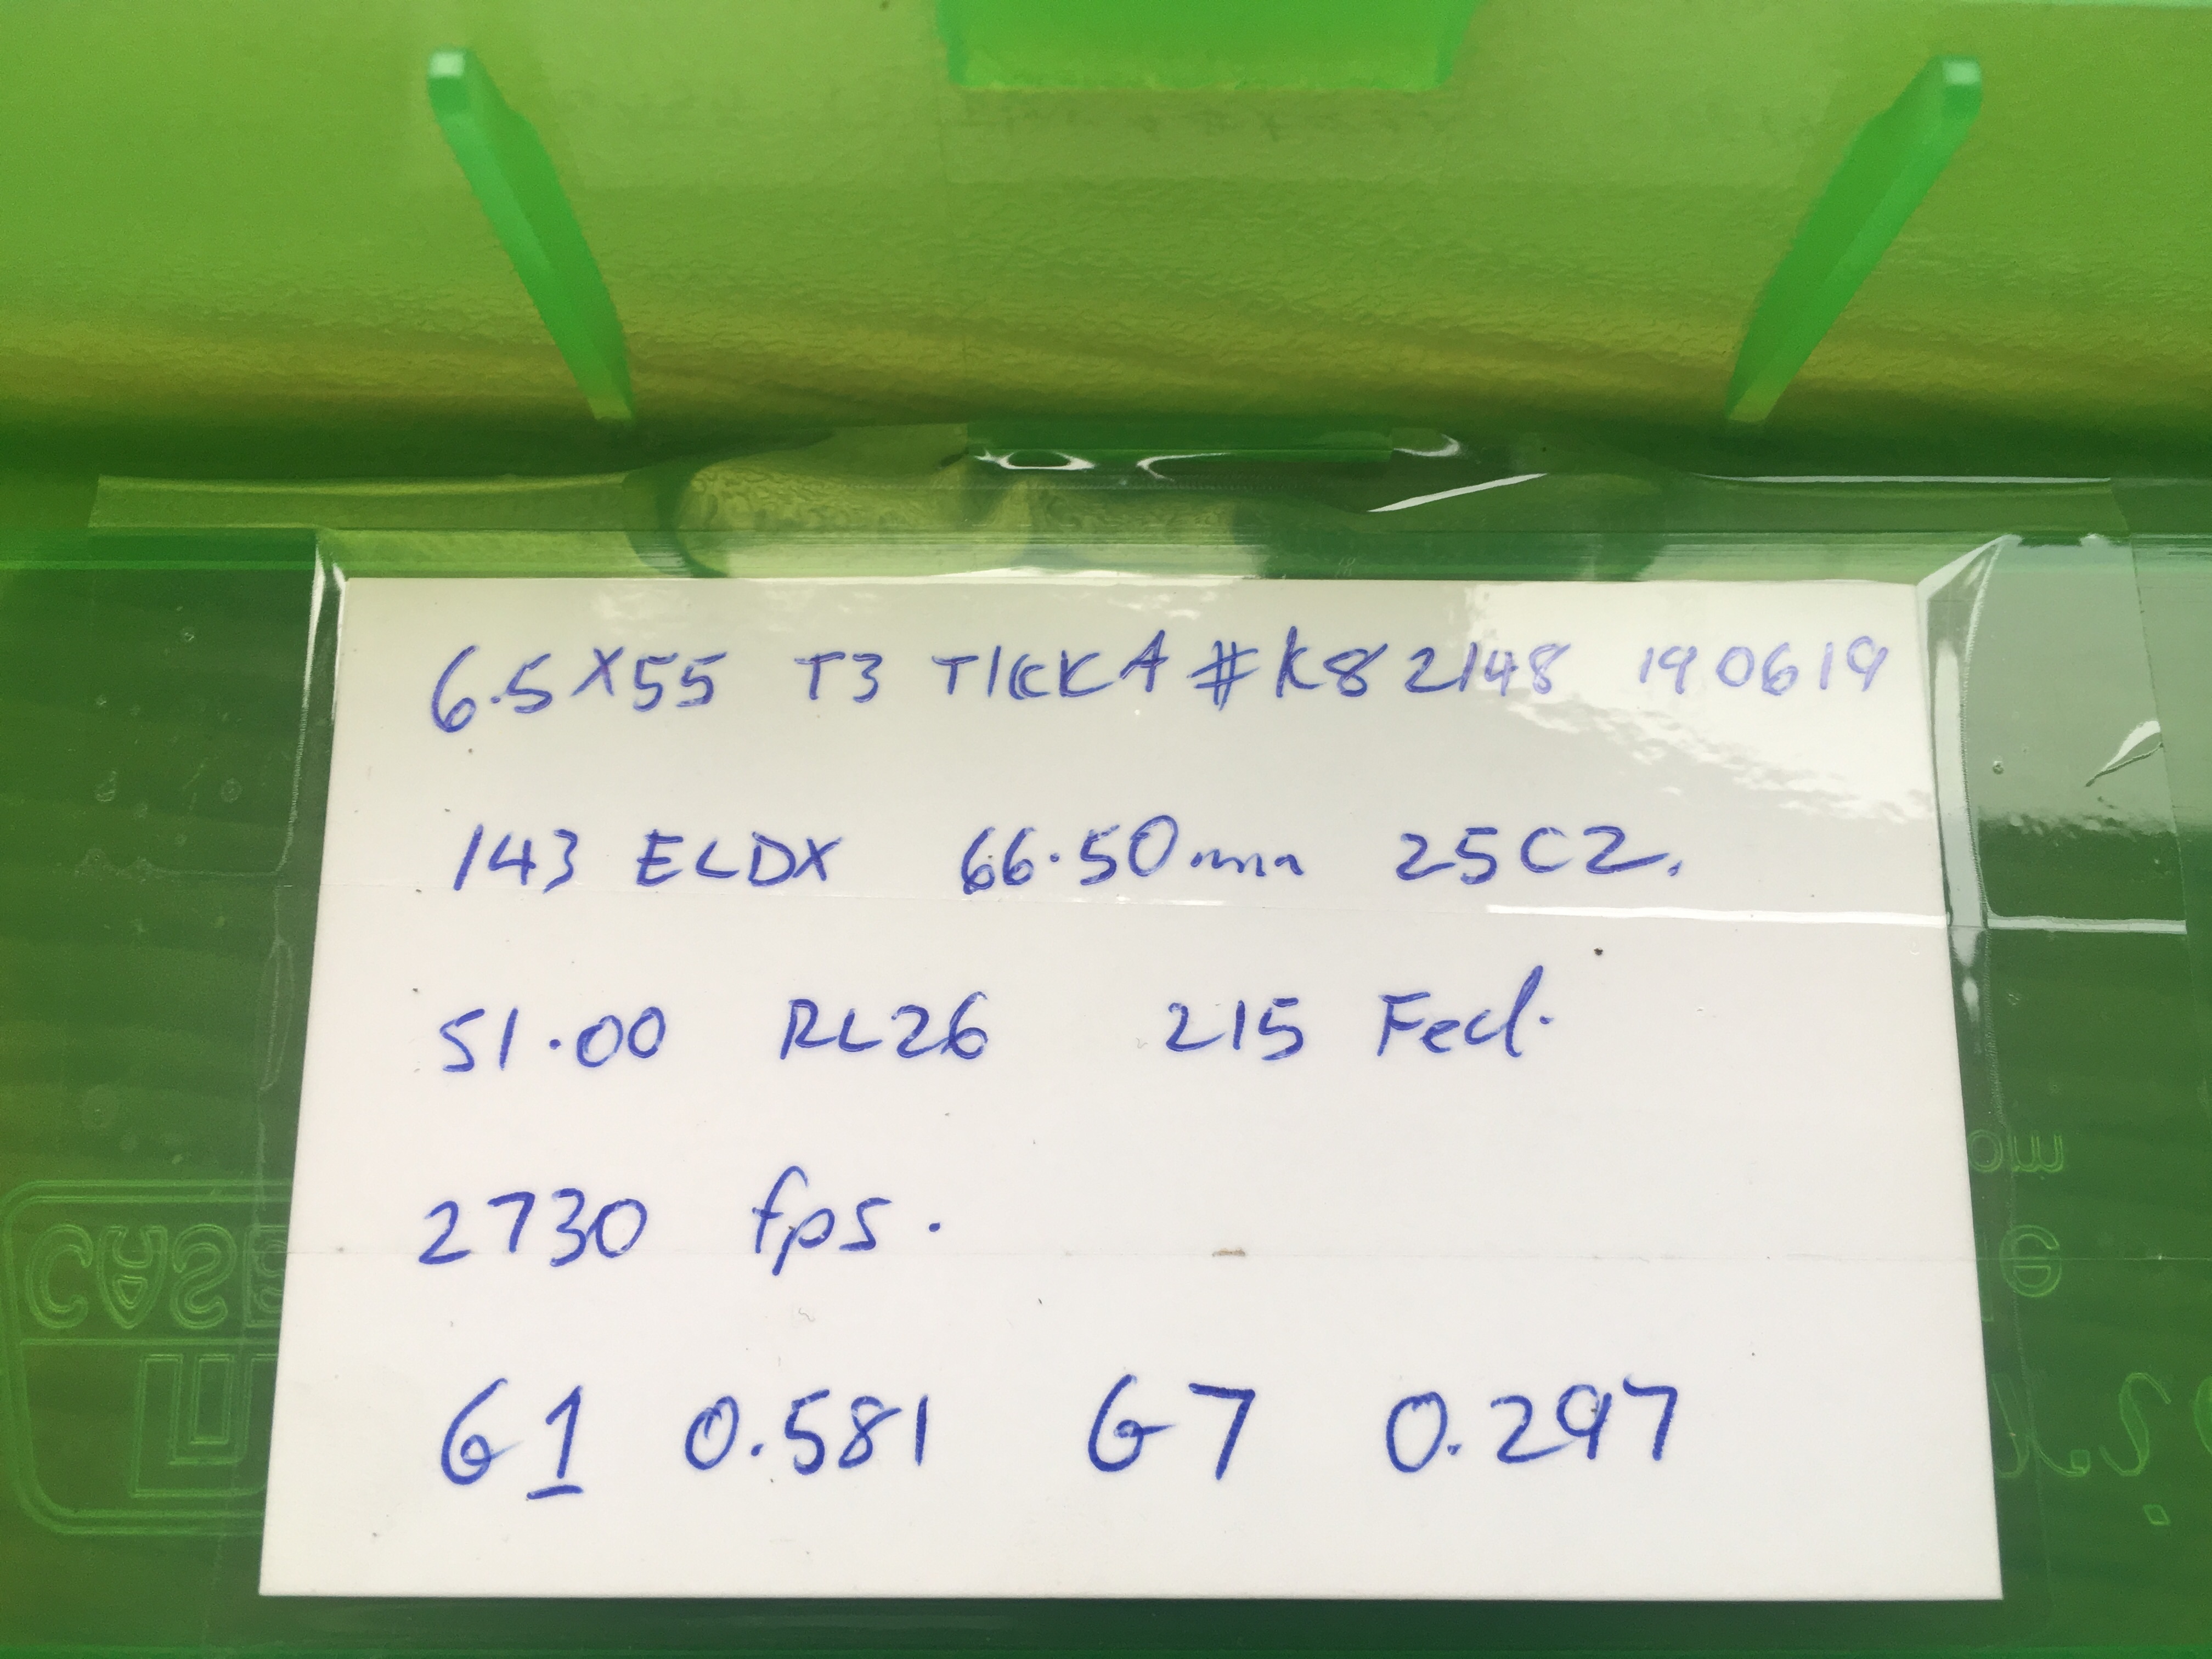 6.5X55 T3 TIKKA #K82148 190619
143 ELDX 66.50mm 25CZ.
51.00 RL26 215 Fed.
2730 fps.
G1 0.581 G7 0.297
CASE